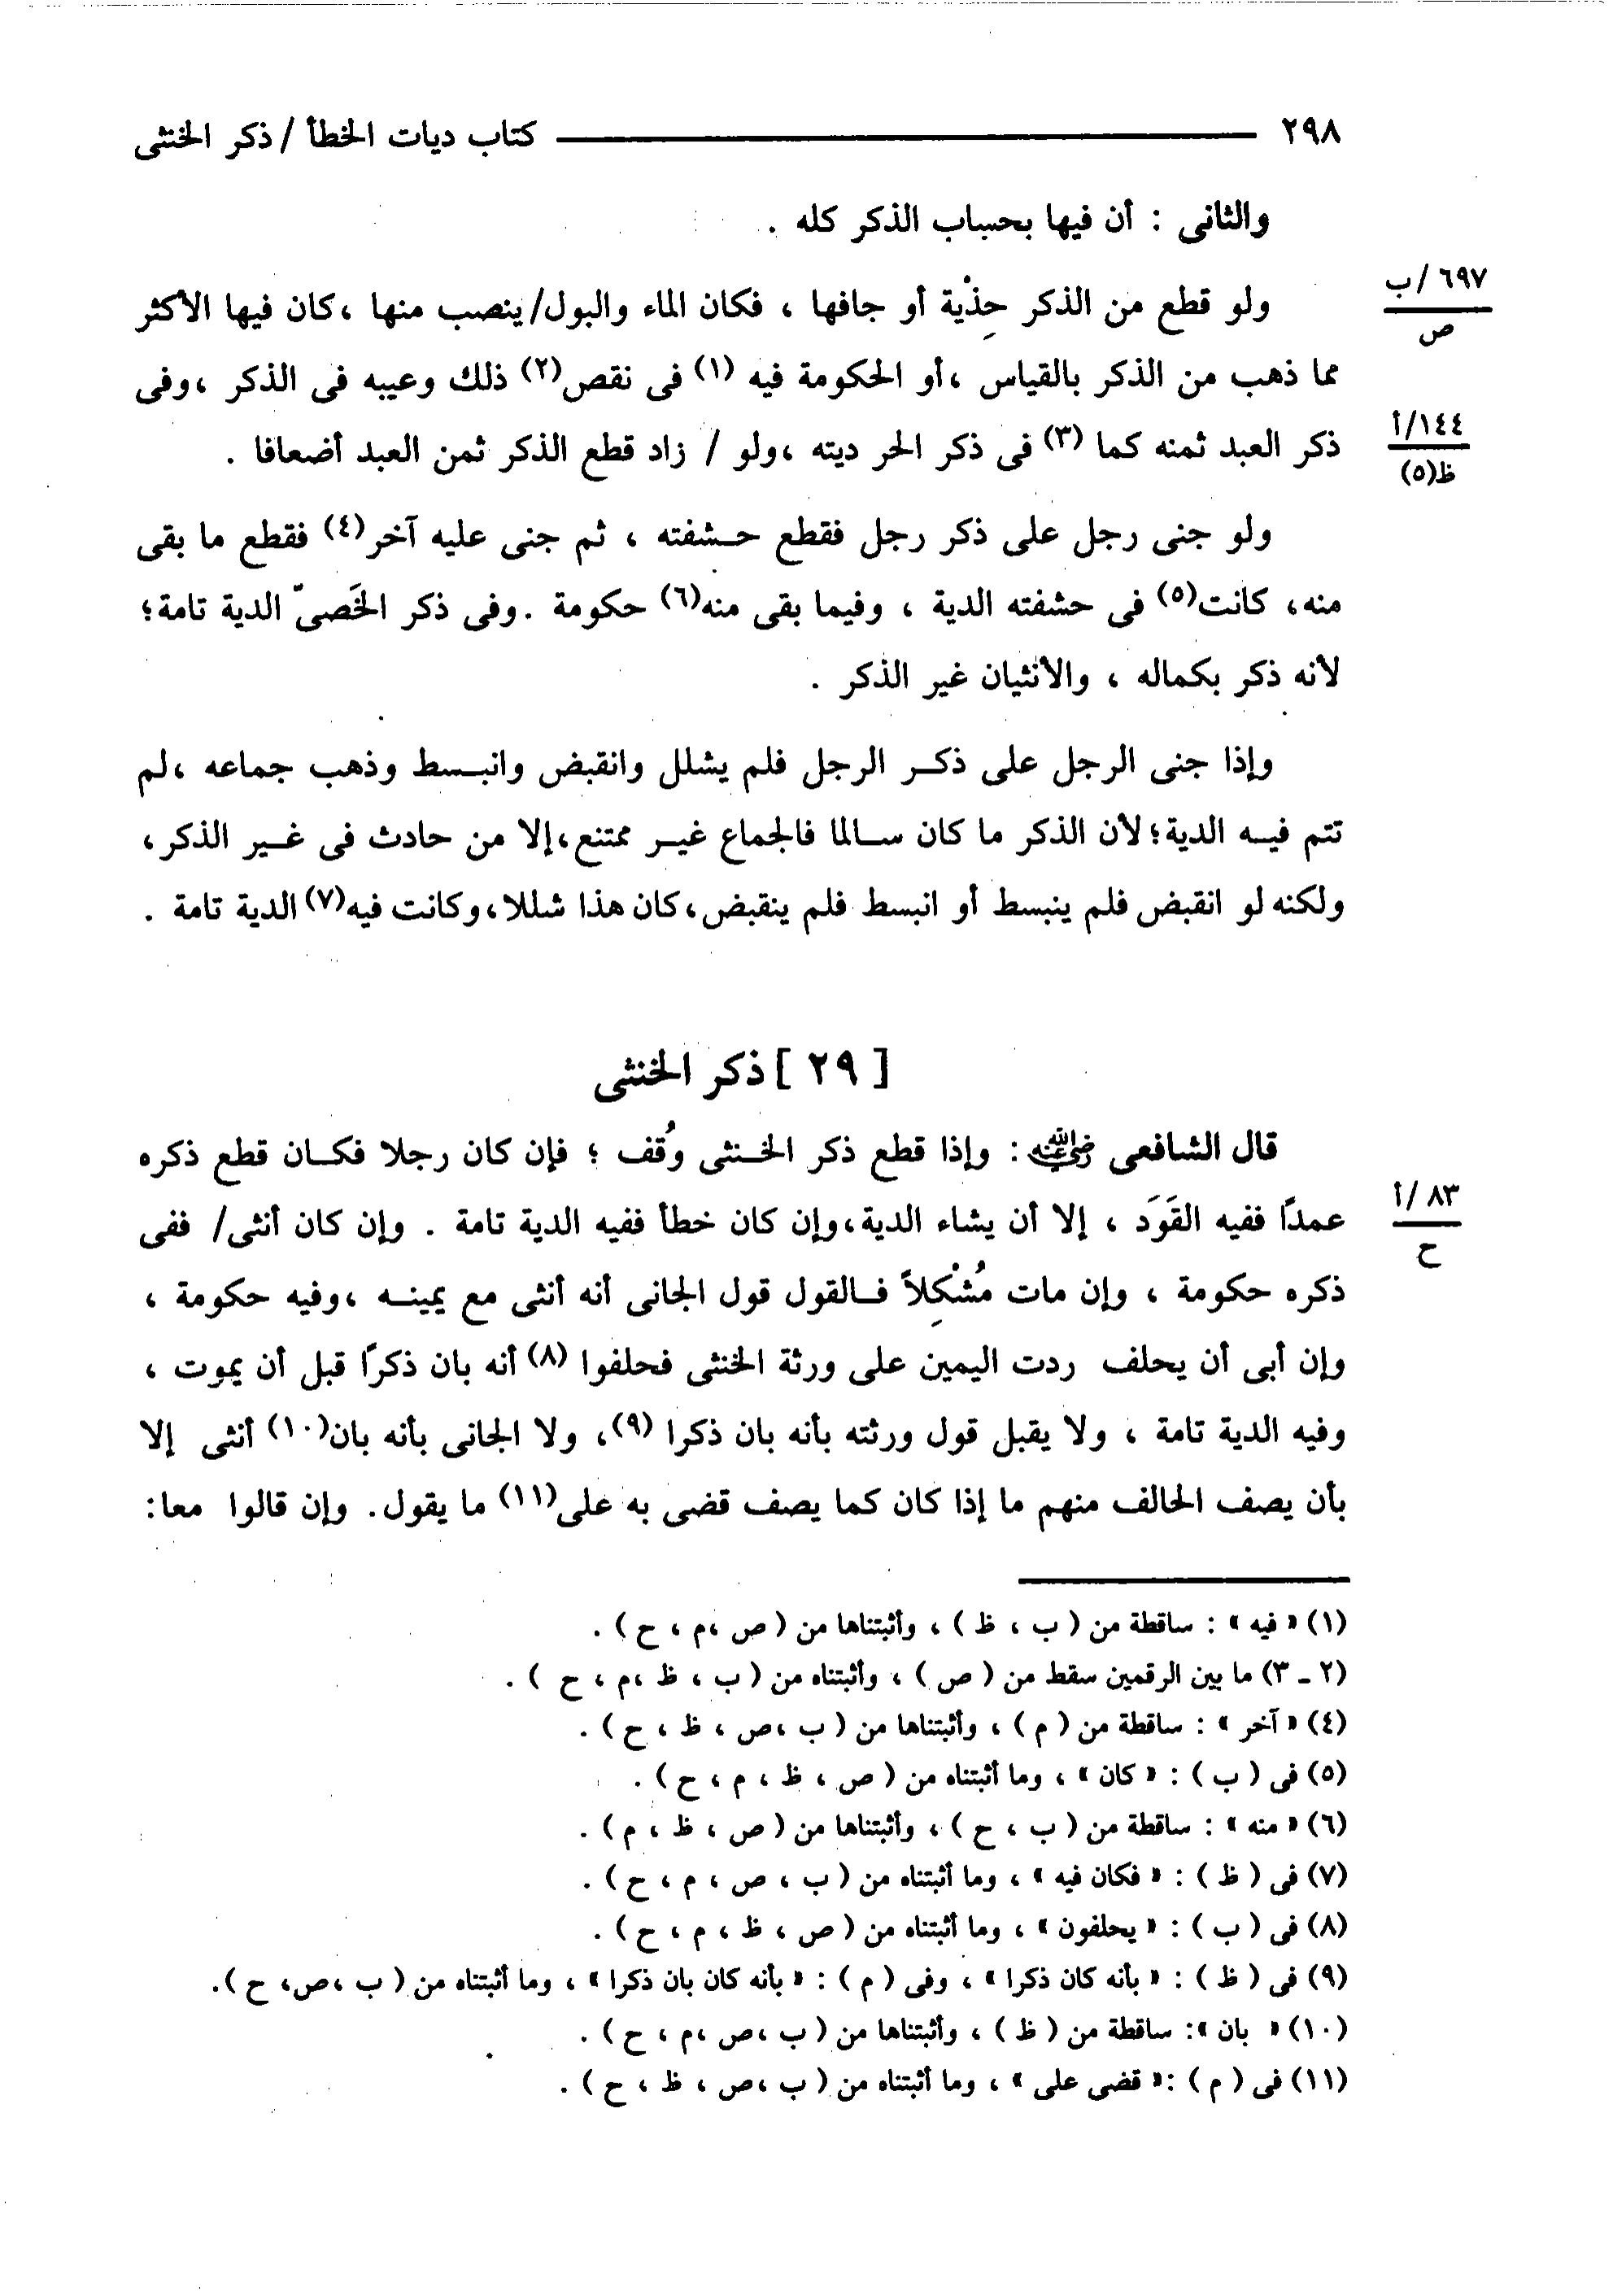 ٢٩٨ كتاب ديات الخطأ / ذكر الخنثى
والثانى : أن فيها بحساب الذكر كله .
ولو قطع من الذكر حِذْية أو جافها ، فكان الماء والبول/ينصب منها ،كان فيها الأكثر
٦٩٧/ب
ص
مما ذهب من الذكر بالقياس ،أو الحكومة فيه (١) فى نقص(٢) ذلك وعيبه فى الذكر ،وفى
ذكر العبد ثمنه كما (٣) فى ذكر الحر ديته ،ولو / زاد قطع الذكر ثمن العبد أضعافا .
١٤٤/أ
ظ(٥)
ولو جنى رجل على ذكر رجل فقطع حشفته ، ثم جنى عليه آخر(٤) فقطع ما بقى
منه، كانت(٥) فى حشفته الدية ، وفيما بقى منه(٦) حكومة .وفى ذكر الخَصىّ الدية تامة؛
لأنه ذكر بكماله ، والأنثيان غير الذكر .
وإذا جنى الرجل على ذكر الرجل فلم يشلل وانقبض وانبسط وذهب جماعه ،لم
تتم فيه الدية؛لأن الذكر ما كان سالما فالجماع غير ممتنع،إلا من حادث فى غير الذكر،
ولكنه لو انقبض فلم ينبسط أو انبسط فلم ينقبض،كان هذا شللا،وكانت فيه(٧) الدية تامة .
[ ٢٩ ] ذكر الخنثى
قال الشافعى رضي الله عنه : وإذا قطع ذكر الخنثى وُقف ؛ فإن كان رجلا فكان قطع ذكره
عمدًا ففيه القَوَد ، إلا أن يشاء الدية،وإن كان خطأ ففيه الدية تامة . وإن كان أنثى/ ففى
٨٣/أ
ح
ذكره حكومة ، وإن مات مُشْكِلاً فالقول قول الجانى أنه أنثى مع يمينه ،وفيه حكومة ،
وإن أبى أن يحلف ردت اليمين على ورثة الخنثى فحلفوا (٨) أنه بان ذكرًا قبل أن يموت ،
وفيه الدية تامة ، ولا يقبل قول ورثته بأنه بان ذكرا (٩)، ولا الجانى بأنه بان(١٠) أنثى إلا
بأن يصف الحالف منهم ما إذا كان كما يصف قضى به على(١١) ما يقول. وإن قالوا معا:
(١) « فيه » : ساقطة من ( ب ، ظ ) ، وأثبتناها من ( ص ،م ، ح ) .
(٢ ـ ٣) ما بين الرقمين سقط من ( ص ) ، وأثبتناه من ( ب ، ظ ،م ، ح ) .
(٤) « آخر » : ساقطة من ( م ) ، وأثبتناها من ( ب ،ص ، ظ ، ح ) .
(٥) فى ( ب ) : « كان » ، وما أثبتناه من ( ص ، ظ ، م ، ح ) .
(٦) « منه » : ساقطة من ( ب ، ح ) ، وأثبتناها من ( ص ، ظ ، م ) .
(٧) فى ( ظ ) : « فكان فيه » ، وما أثبتناه من ( ب ، ص ، م ، ح ) .
(٨) فى ( ب ) : « يحلفون » ، وما أثبتناه من ( ص ، ظ ، م ، ح ) .
(٩) فى ( ظ ) : « بأنه كان ذكرا » ، وفى ( م ) : « بأنه كان بان ذكرا » ، وما أثبتناه من ( ب ،ص، ح ).
(١٠) « بان »: ساقطة من ( ظ ) ، وأثبتناها من ( ب ،ص ،م ، ح ) .
(١١) فى ( م ) :« قضى على » ، وما أثبتناه من ( ب ،ص ، ظ ، ح ) .